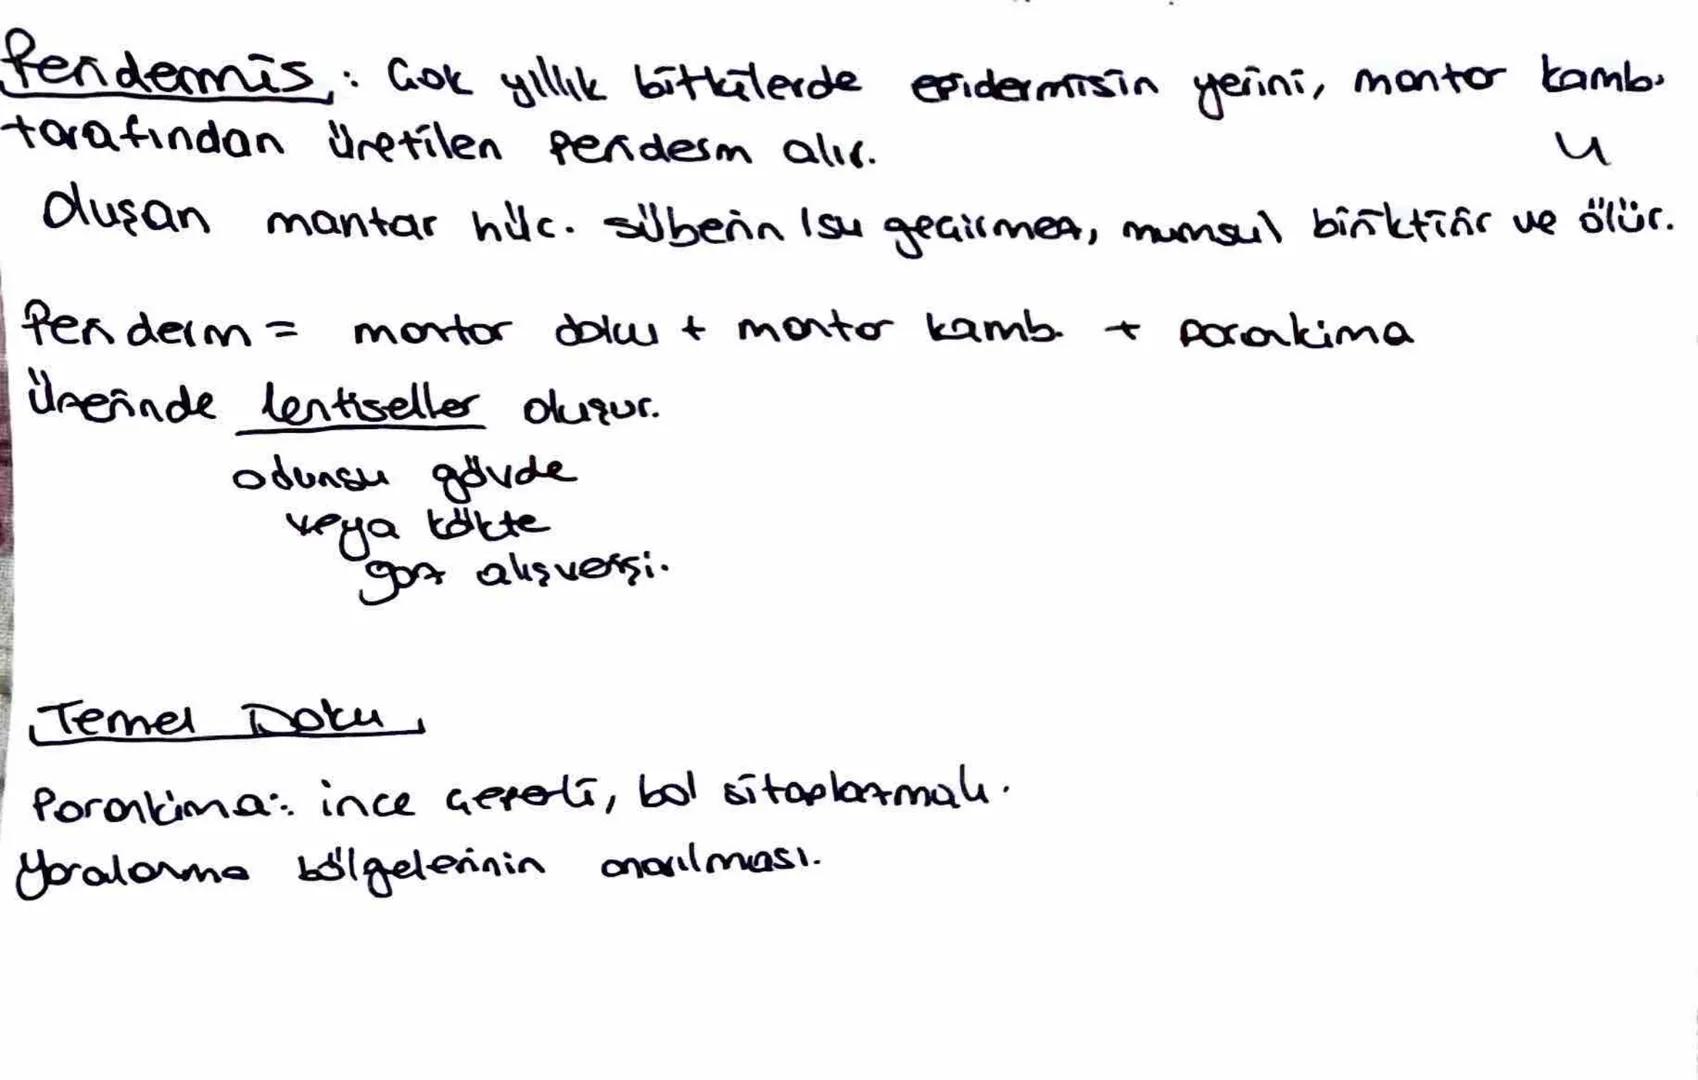 Peridermis : Çok yıllık bitkilerde epidermisin yerini, mantar kamb.
u
tarafından üretilen periderm alır.
Oluşan mantar hüc. süberin (su geçirmez, mumsu) biriktirir ve ölür.
Periderm = mantar doku + mantar kamb. + parankima
Üzerinde lentiseller oluşur.
odunsu gövde
veya kökte
gaz alışverişi.
Temel Doku
Parankima: ince çeperli, bol sitoplazmalı.
Yaralanma bölgelerinin onarılması.